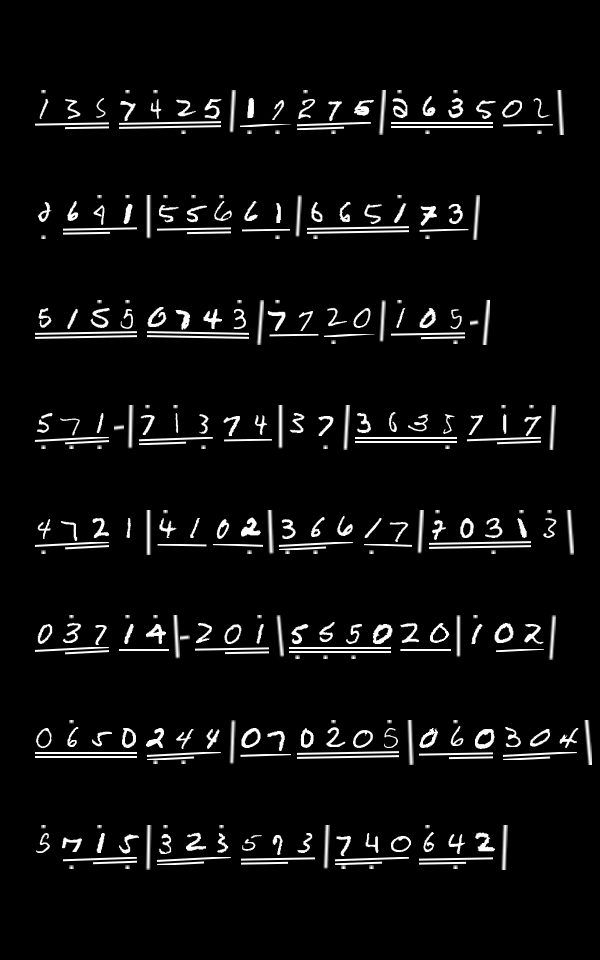 1357425|17275|263502
2641|55661|665173
51550743|7720|105-|
571-|71374|37|3635717
4721|4102|36617|70313
03714|-201|555020|102
0650244|070205|060304|
5715|323573|740642|